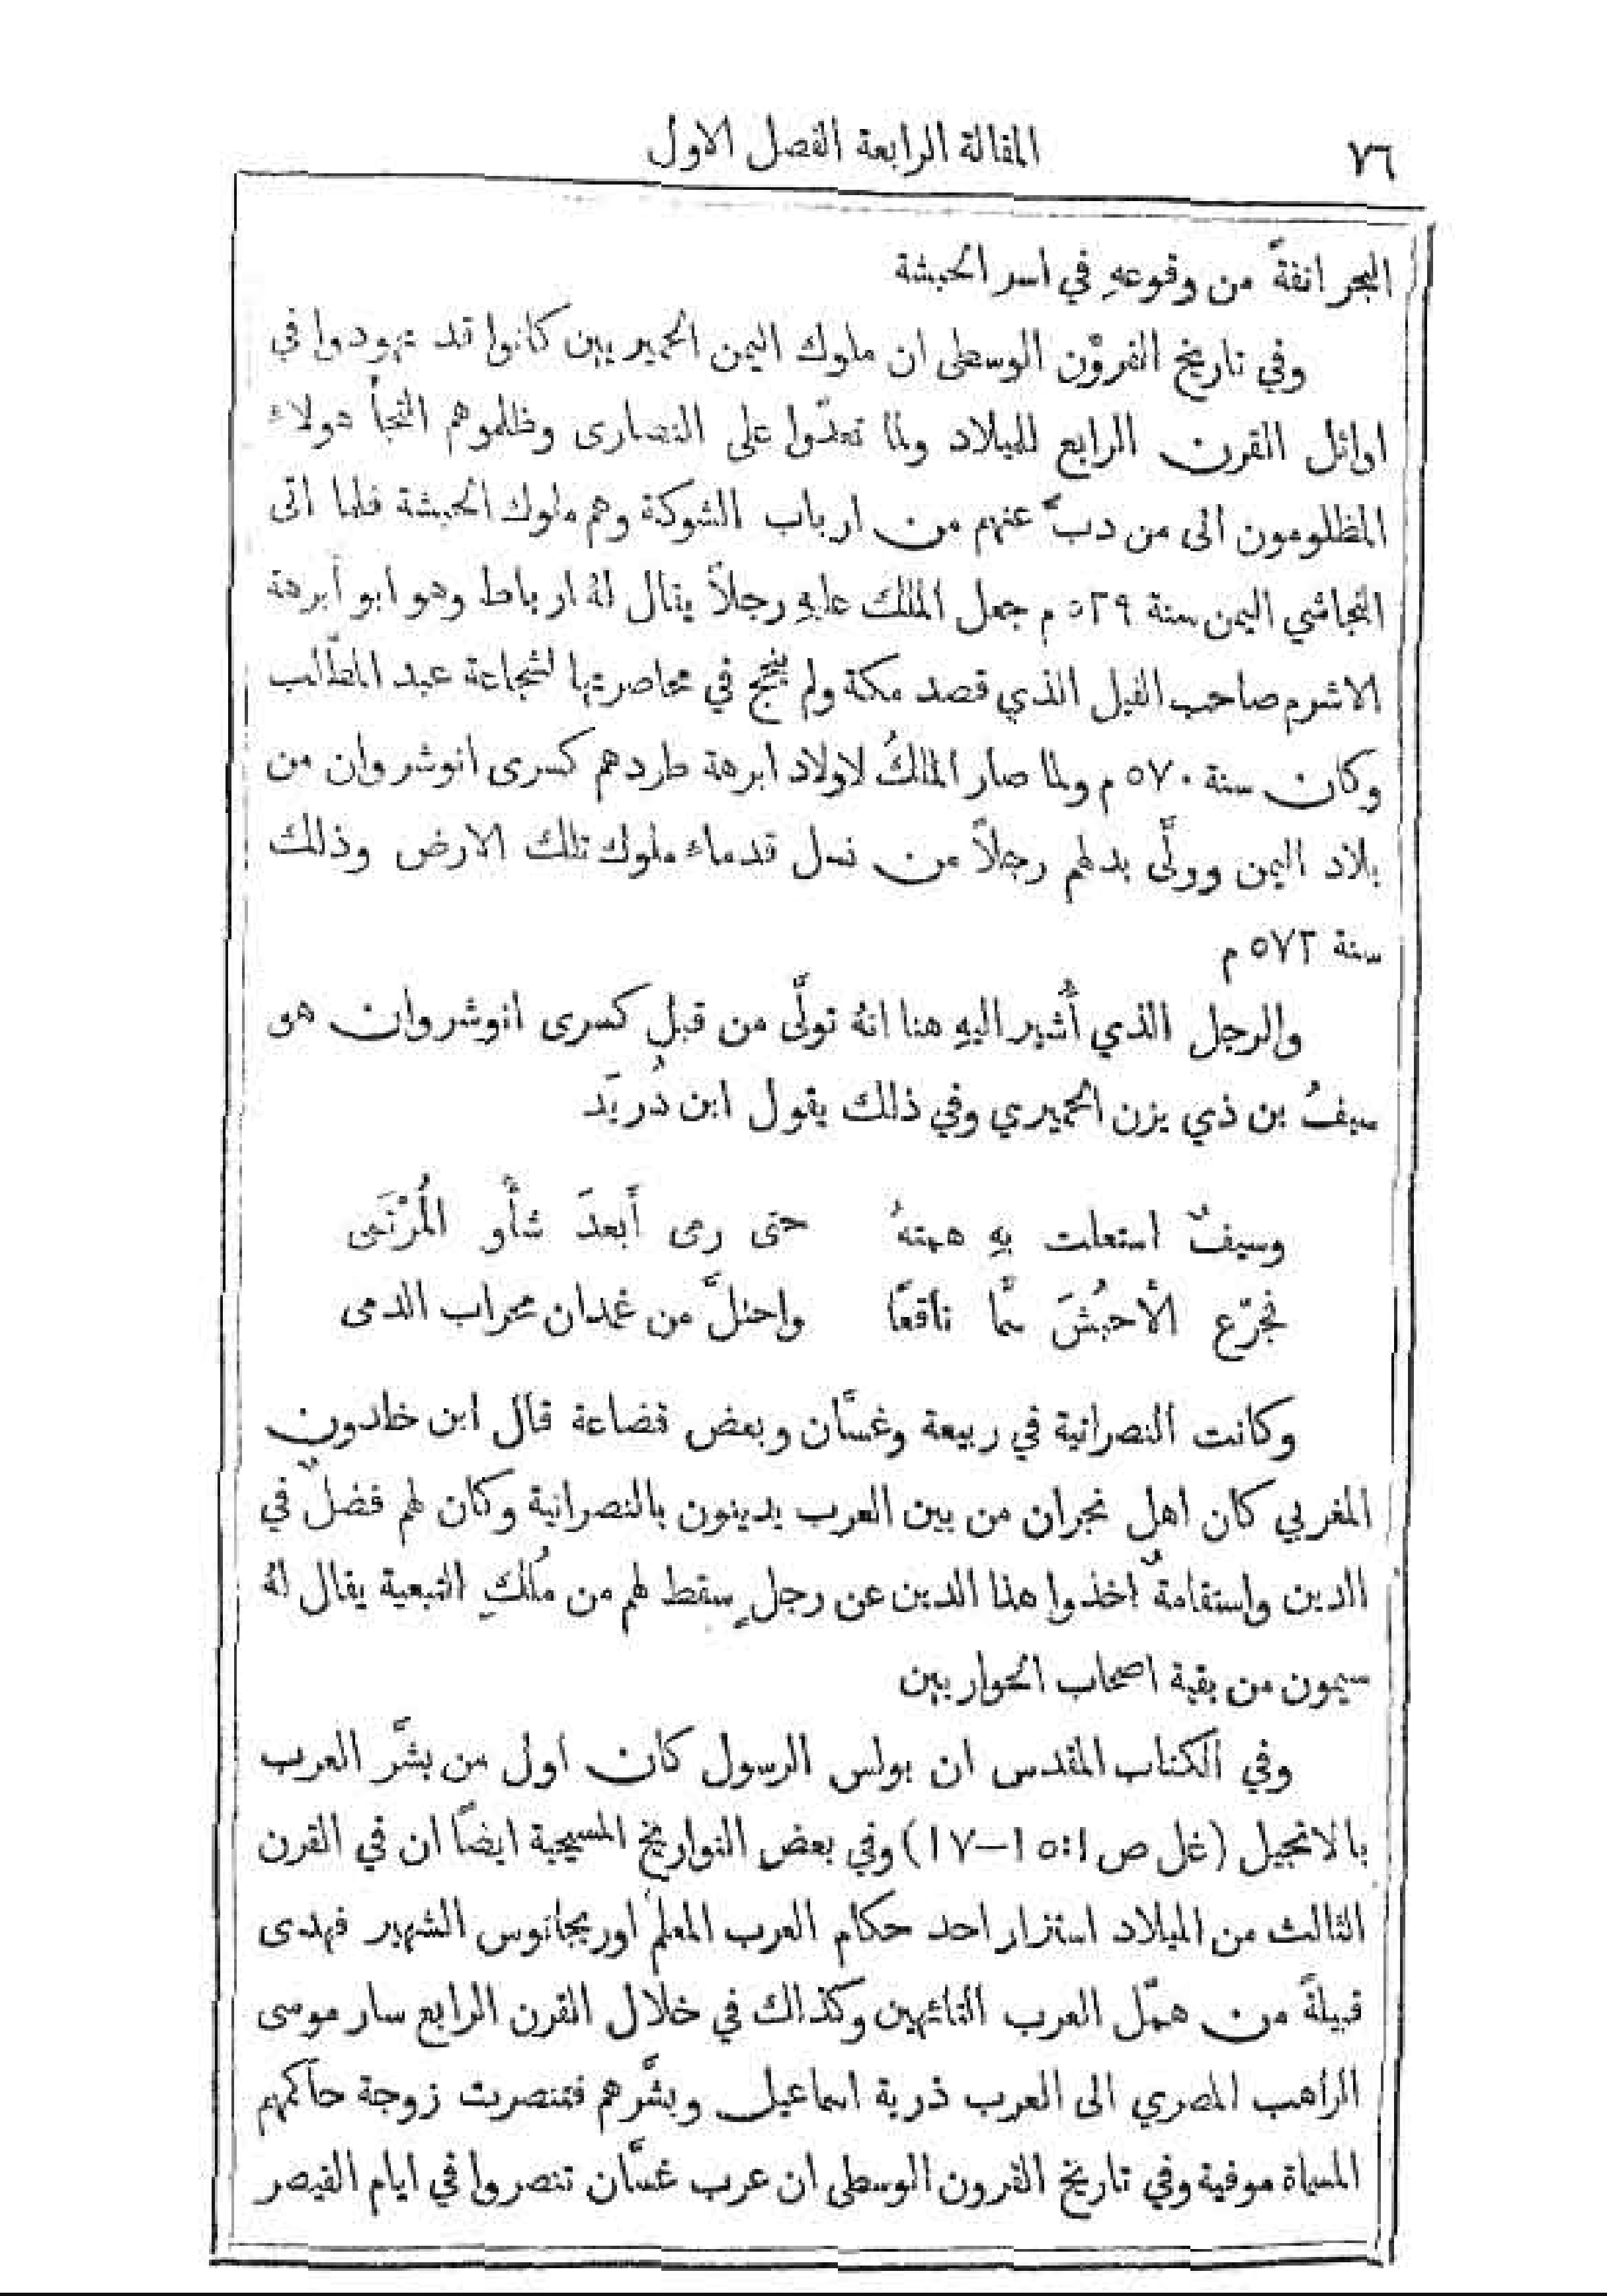 ٧٦
المقالة الرابعة الفصل الاول
البحر انفةً من وقوعهِ في اسر الحبشة
وفي تاريخ القرون الوسطى ان ملوك اليمن الحميريين كانوا قد تهودوا في
اوائل القرن الرابع للميلاد ولما تعدَّوا على النصارى وظلموهم التجأَ هولاء
المظلومون الى من دبَّ عنهم من ارباب الشوكة وهم ملوك الحبشة فلما اتى
النجاشي اليمن سنة ٥٢٩ م جعل الملك عليهِ رجلاً يقال لهُ ارباط وهو ابو أبرهة
الاشرم صاحب الفيل الذي قصد مكة ولم ينجح في محاصرتها لشجاعة عبد المطَّلب
وكان سنة ٥٧٠ م ولما صار الملكُ لاولاد ابرهة طردهم كسرى انوشروان من
بلاد اليمن وولَّى بدلهم رجلاً من نسل قدماء ملوك تلك الارض وذلك
سنة ٥٧٢ م
والرجل الذي أُشير اليهِ هنا انهُ تولَّى من قبل كسرى انوشروان هو
سيفُ بن ذي يزن الحميري وفي ذلك يقول ابن دُرَيد
وسيفٌ استعلت بهِ همتهُ حتى رمى أَبعدَ شأْوِ المُرْتَمى
فجرّع الأُحبُشَ سمًّا ناقعًا واحتلَّ من غمدان محراب الدمى
وكانت النصرانية في ربيعة وغسَّان وبعض قضاعة قال ابن خلدون
المغربي كان اهل نجران من بين العرب يدينون بالنصرانية وكان لهم فضلٌ في
الدين واستقامةٌ اخذوا هذا الدين عن رجلٍ سقط لهم من مُلكِ التبعية يقال لهُ
سيمون من بقية اصحاب الحواريين
وفي الكتاب المقدس ان بولس الرسول كان اول من بشَّر العرب
بالانجيل (غل ص ١:١٥–١٧) وفي بعض التواريخ المسيحية ايضاً ان في القرن
الثالث من الميلاد استزار احد حكام العرب المعلم اوريجانوس الشهير فهدى
قبيلةً من همَّل العرب التائهين وكذلك في خلال القرن الرابع سار موسى
الراهب المصري الى العرب ذرية اسماعيل وبشَّرهم فتنصرت زوجة حاكمهم
المسماة موفية وفي تاريخ القرون الوسطى ان عرب غسَّان تنصروا في ايام القيصر